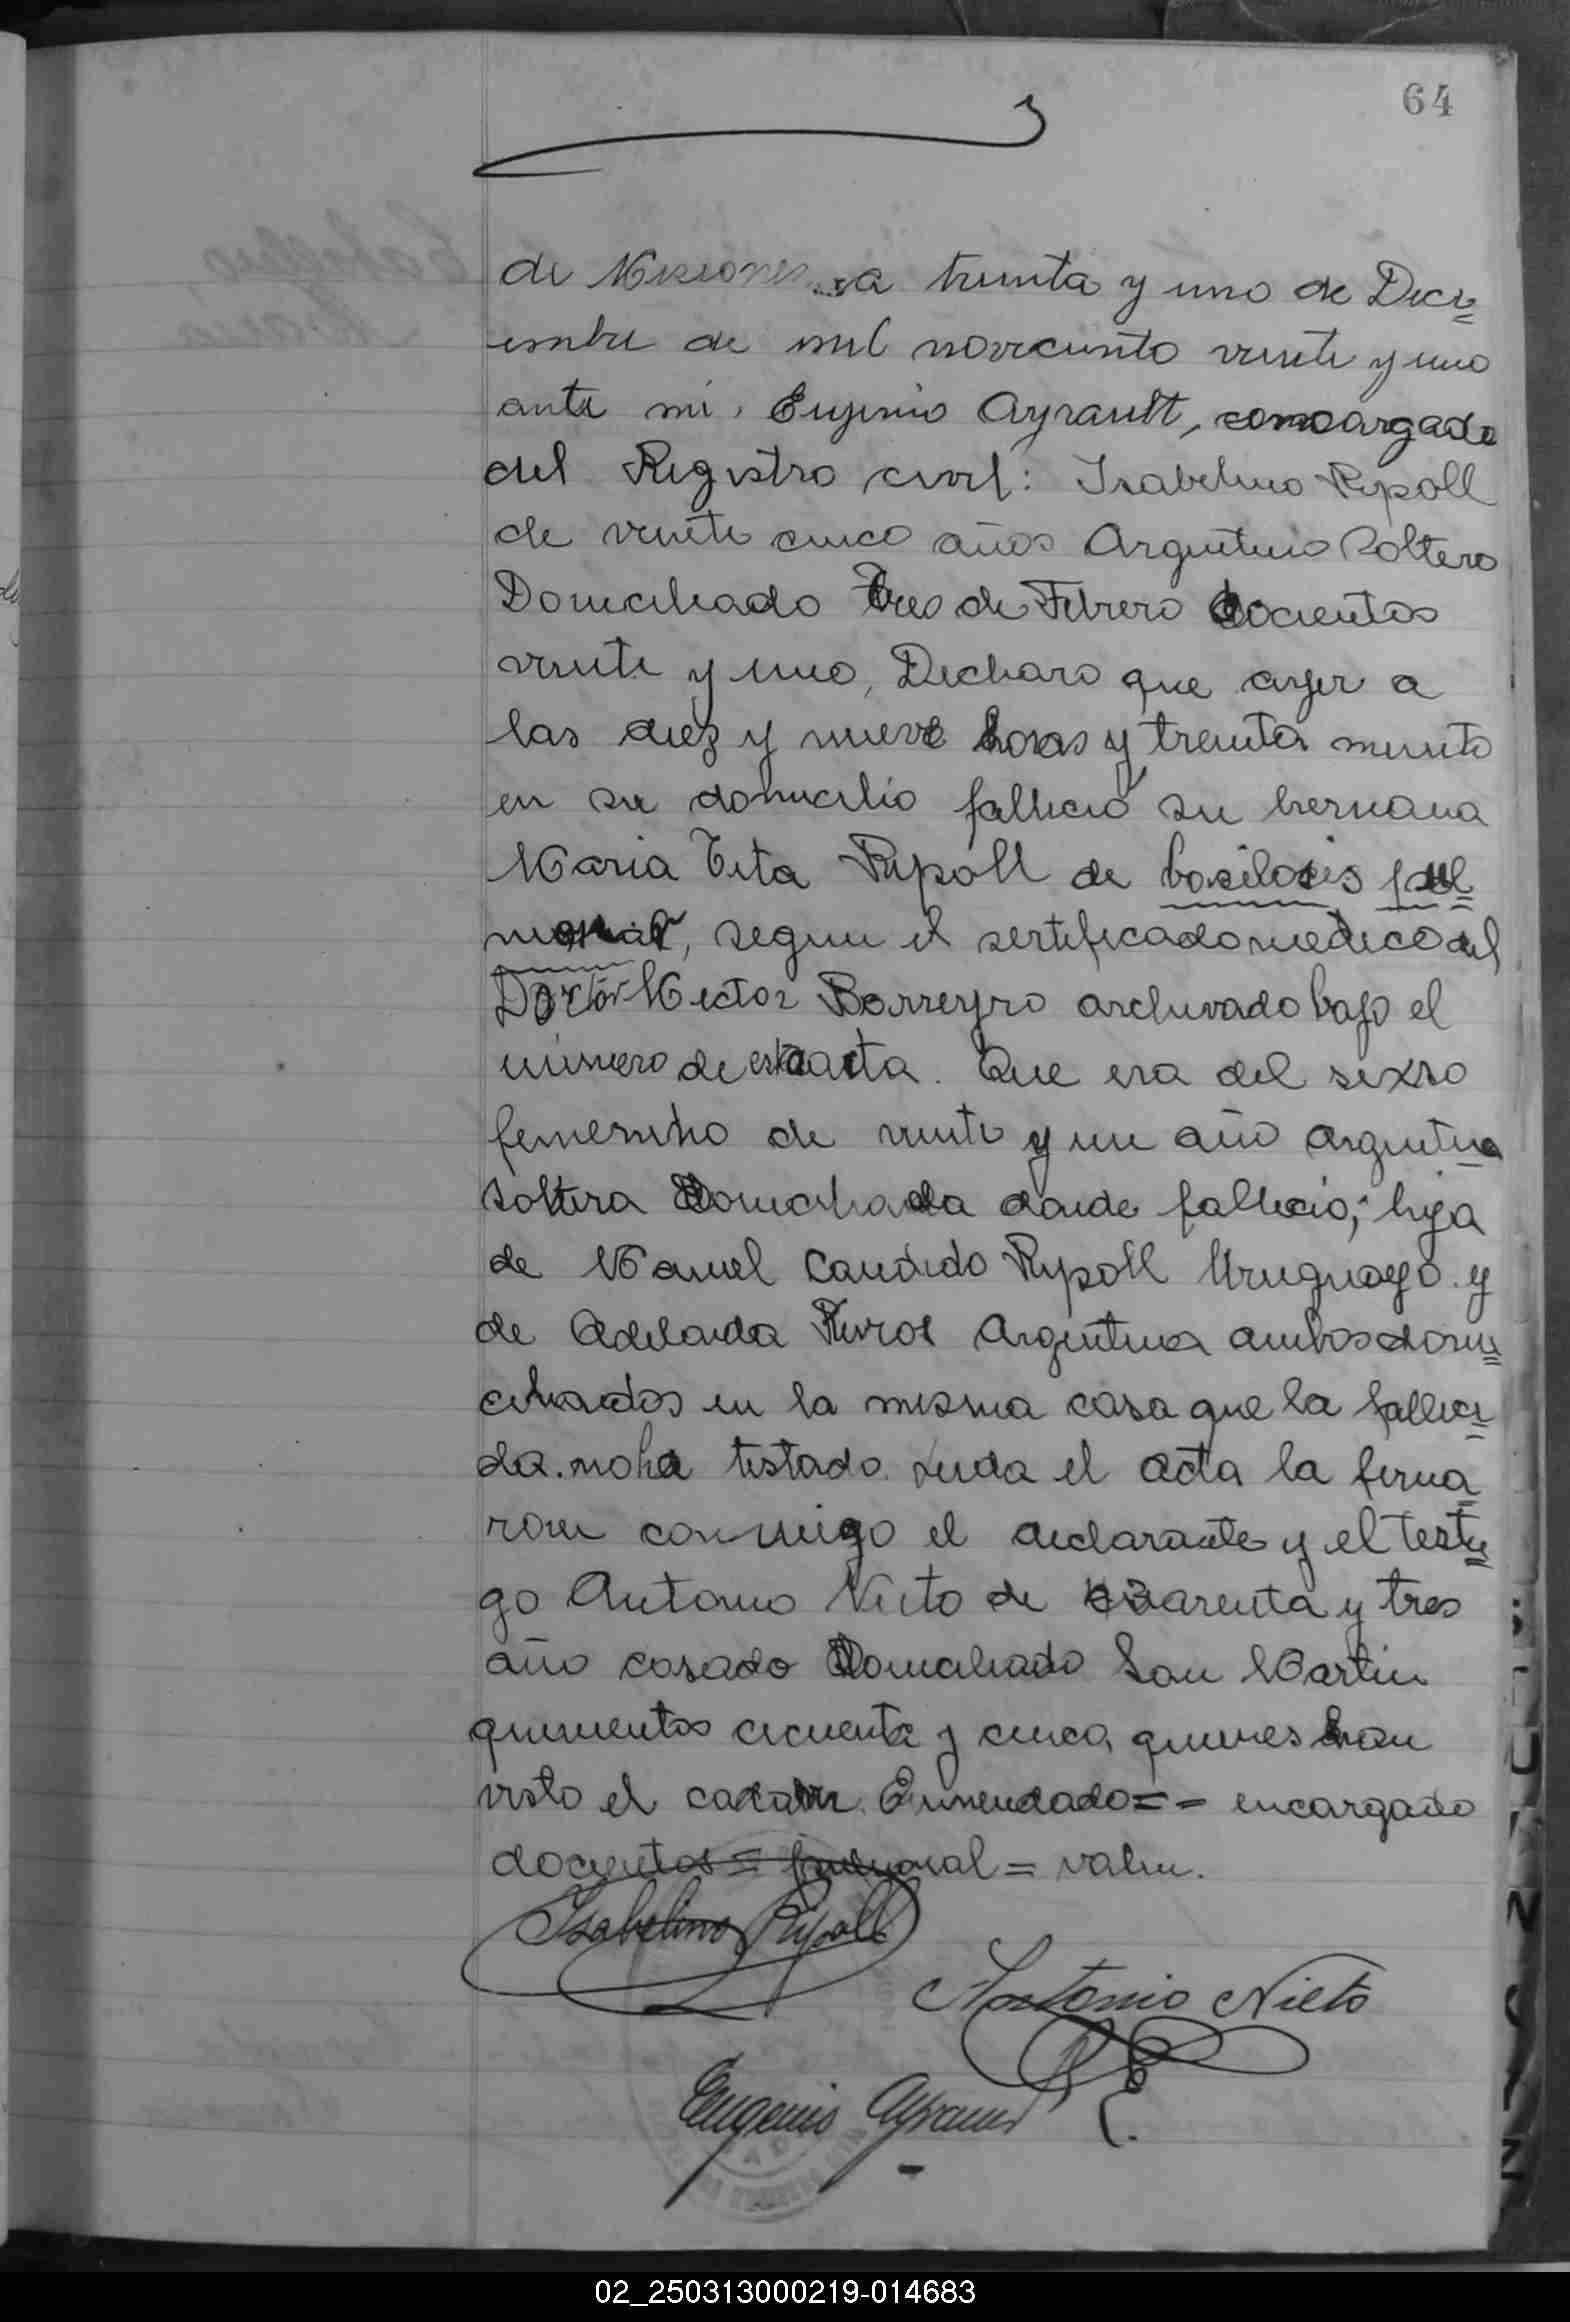 64
de Misiones, a treinta y uno de Dici=
embre de mil noveciento veinte y uno
ante mi, Eugenio Ayrault, encargado
del Registro civil: Isabelino Ripoll
de veinte cinco años Argentino Soltero
Domiciliado Tres de Febrero docientos
veinte y uno, Declaro que ayer a
las diez y nueve horas y treinta minuto
en su domicilio fallecio su hermana
Maria Tita Ripoll de bacilosis pul=
monar, segun el sertificado medico del
Doctor Hector Barreyro archivado bajo el
número de esta acta. Que era del sexso
femenino de veinte y un año argentina
soltera domiciliada donde fallecio; hija
de Manuel Candido Ripoll Uruguayo y
de Adelaida Argentina ambos domi=
ciliados en la misma casa que la falleci=
da. no ha testado. Leida el acta la firma=
ron conmigo el declarante y el testi=
go Antonio Nieto de cuarenta y tres
año casado Domiciliado San Martin
quinientos cicuenta y cinco, quienes han
visto el cadaver. Enmendado = = encargado
docientos = pulmonal = valen.
Isabelino Ripoll
Antonio Nieto
Eugenio Ayrault
02_250313000219-014683